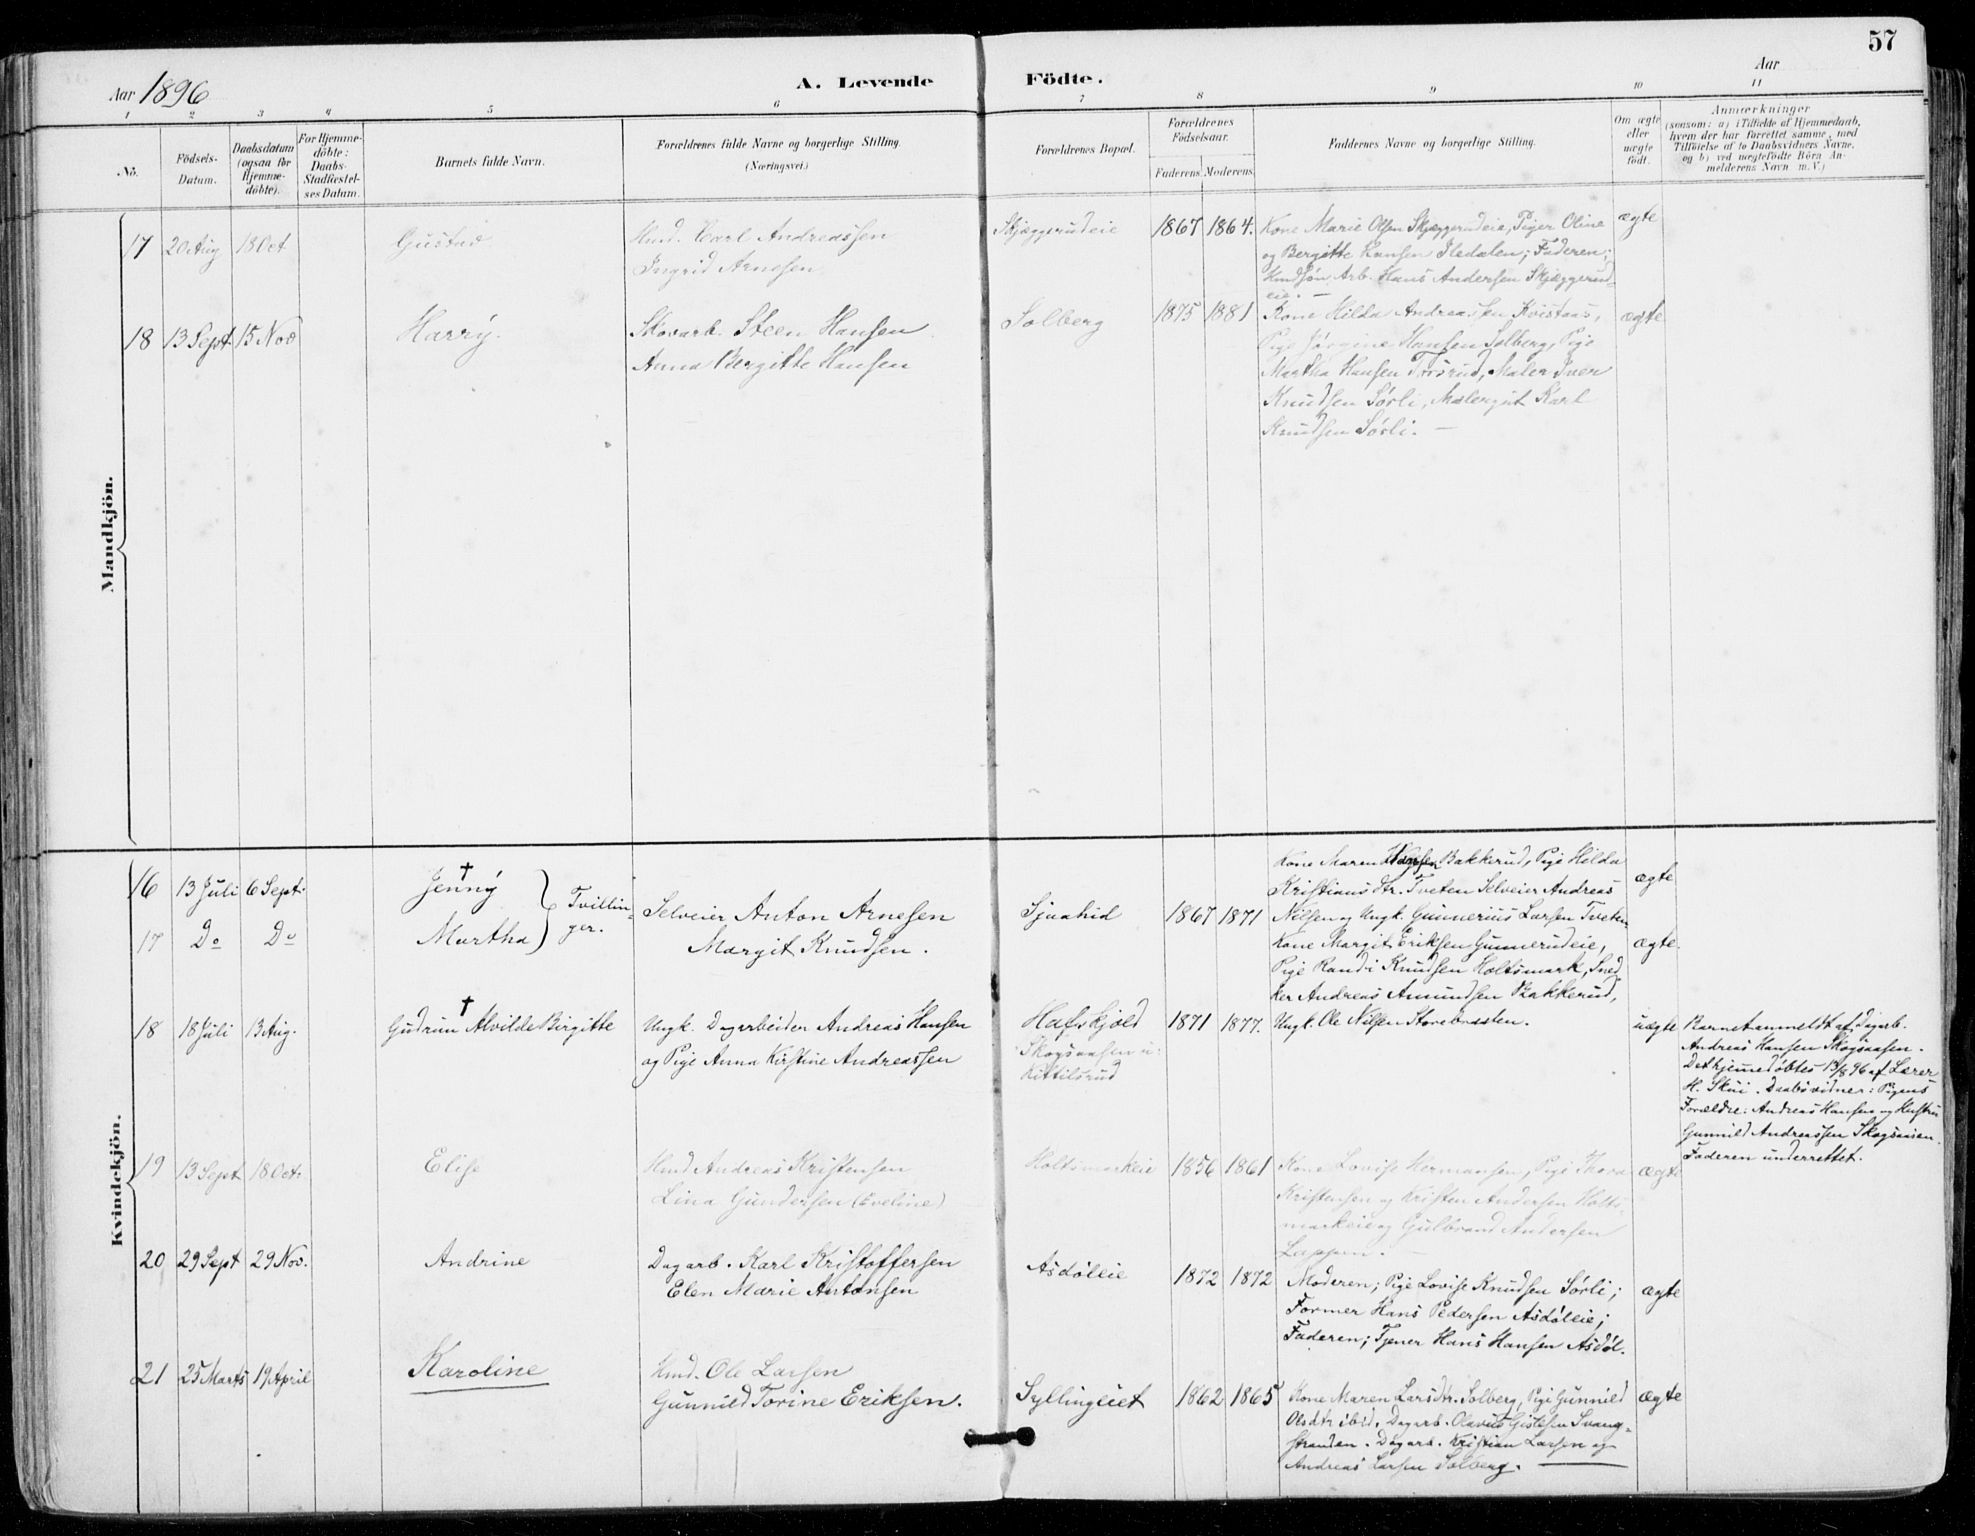 57
Aar 1896
A. Levende Födte.
Aar
1 2 3 4 5 6 7 8 9 10 11
No.
Födsels-
Datum.
Daabsdatum
(ogsaa for
Hjemme-
döbte).
For Hjemme-
döbte:
Daabs-
Stadfæstel-
ses Datum.
Barnets fulde Navn.
Forældrenes fulde Navne og borgerlige Stilling.
(Næringsvei.)
Forældrenes Bopæl.
Forældrenes
Födselsaar.
Faderens. Moderens.
Faddernes Navne og borgerlige Stilling.
Om ægte
eller
uægte
födt.
Anmærkninger
(saasom: a) i Tilfælde af Hjemmedaab,
hvem der har forrettet samme, med
Tilföielse af to Daabsvidners Navne,
og b) ved uægtefödte Börn An-
melderens Navn m. V.)
Mandkjön.
17 20 Aug 18 Oct Gustav
Husmd. Carl Andreassen
Ingrid Arnesen
Skjæggerudeie 1867 1864.
Kone Marie Olsen Skjæggerudeie, Piger Oline
og Bergitte Hansen Iledalen; Faderen;
Arb. Hans Andersen Skjæggerud-
eie. —
ægte
18 13 Sept 15 Nov Harry.
Skovarb. Steen Hansen
Anna Bergitte Hansen
Solberg 1875 1881
Kone Hilda Andreassen
Pige Jørgine Hansen Solberg, Pige
Martha Hansen Torsrud, Maler Iver
Knudsen Sørli, Malergut Karl
Knudsen Sørli. —
ægte
Kvindekjön.
16 13 Juli 6 Sept. Jenny †
17 Do Do Martha
Tvillin-
ger.
Selveier Anton Arnesen
Margit Knudsen.
Sjaahud 1867 1871
Kone Maren Hansen Bakkerud, Pige Hilda
Kristians dtr. Tveten Selveier Andreas
Nilsen og Ungk. Gunnerius Larsen Tveten
Kone Margit Eriksen Gunnerudeie,
Pige Randi Knudsen Holtsmark, Sned-
ker Andreas Amundsen Bakkerud,
Ungk. Ole Nilsen Storebraaten.
ægte
ægte
18 18 Juli 13 Aug. Gudrun Alvilde Birgitte †
Ungk. Dagarbeider Andreas Hansen
og Pige Anna Kirstine Andreassen
Hafskjold
Skogsaasen u.
Kittilsrud
1871 1877.
uægte
Barnet anmeldt af Dagarb.
Andreas Hansen Skogsaasen.
Det hjemmedøbtes 13/8 96 af Lærer
H. Skui. Daabsvidner: Pigens
Forældre: Andreas Hansen og Hustru
Gunnild Andreassen Skogsaasen.
Faderen underrettet.
19 13 Sept 18 Oct. Elise
Husmd Andreas Kristensen
Lina Gundersen (Eveline)
Holtsmarkeie 1856 1861
Kone Lovise Hermansen, Pige Thora
Kristensen og Kristen Andersen Holts-
markeie og Gulbrand Andersen
Lappen. —
ægte
20 29 Sept 29 Nov. Andrine
Dagarb. Karl Kristoffersen
Elen Marie Antonsen
Asdøleie 1872 1872
Moderen; Pige Lovise Knudsen Sørli;
Former Hans Pedersen Asdøleie;
Faderen; Tjener Hans Hansen Asdøl.
ægte
21 25 Marts 19 April Karoline
Husmd. Ole Larsen
Gunnild Torine Eriksen.
Syllingeiet 1862 1865
Kone Maren Larsdtr. Solberg, Pige Gunnild
Olsdtr ibid. Dagarb. Olavus Gislesen Svang-
stranden. Dagarb. Kristian Larsen og
Andreas Larsen Solberg.
ægte